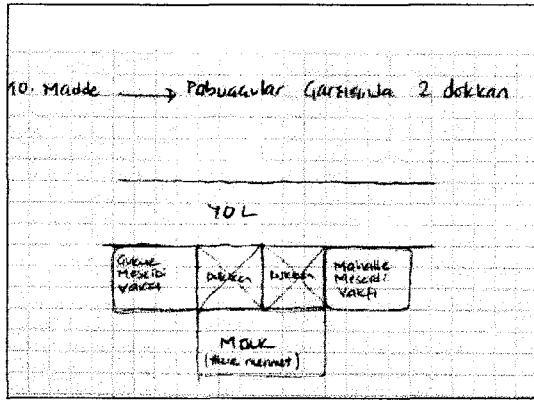 10. Madde → Pabuççular Çarşısında 2 dükkan
YOL
Mescidi
Vakfı
Dükkan
Dükkan
Mahalle
Mescidi
Vakfı
MÜLK